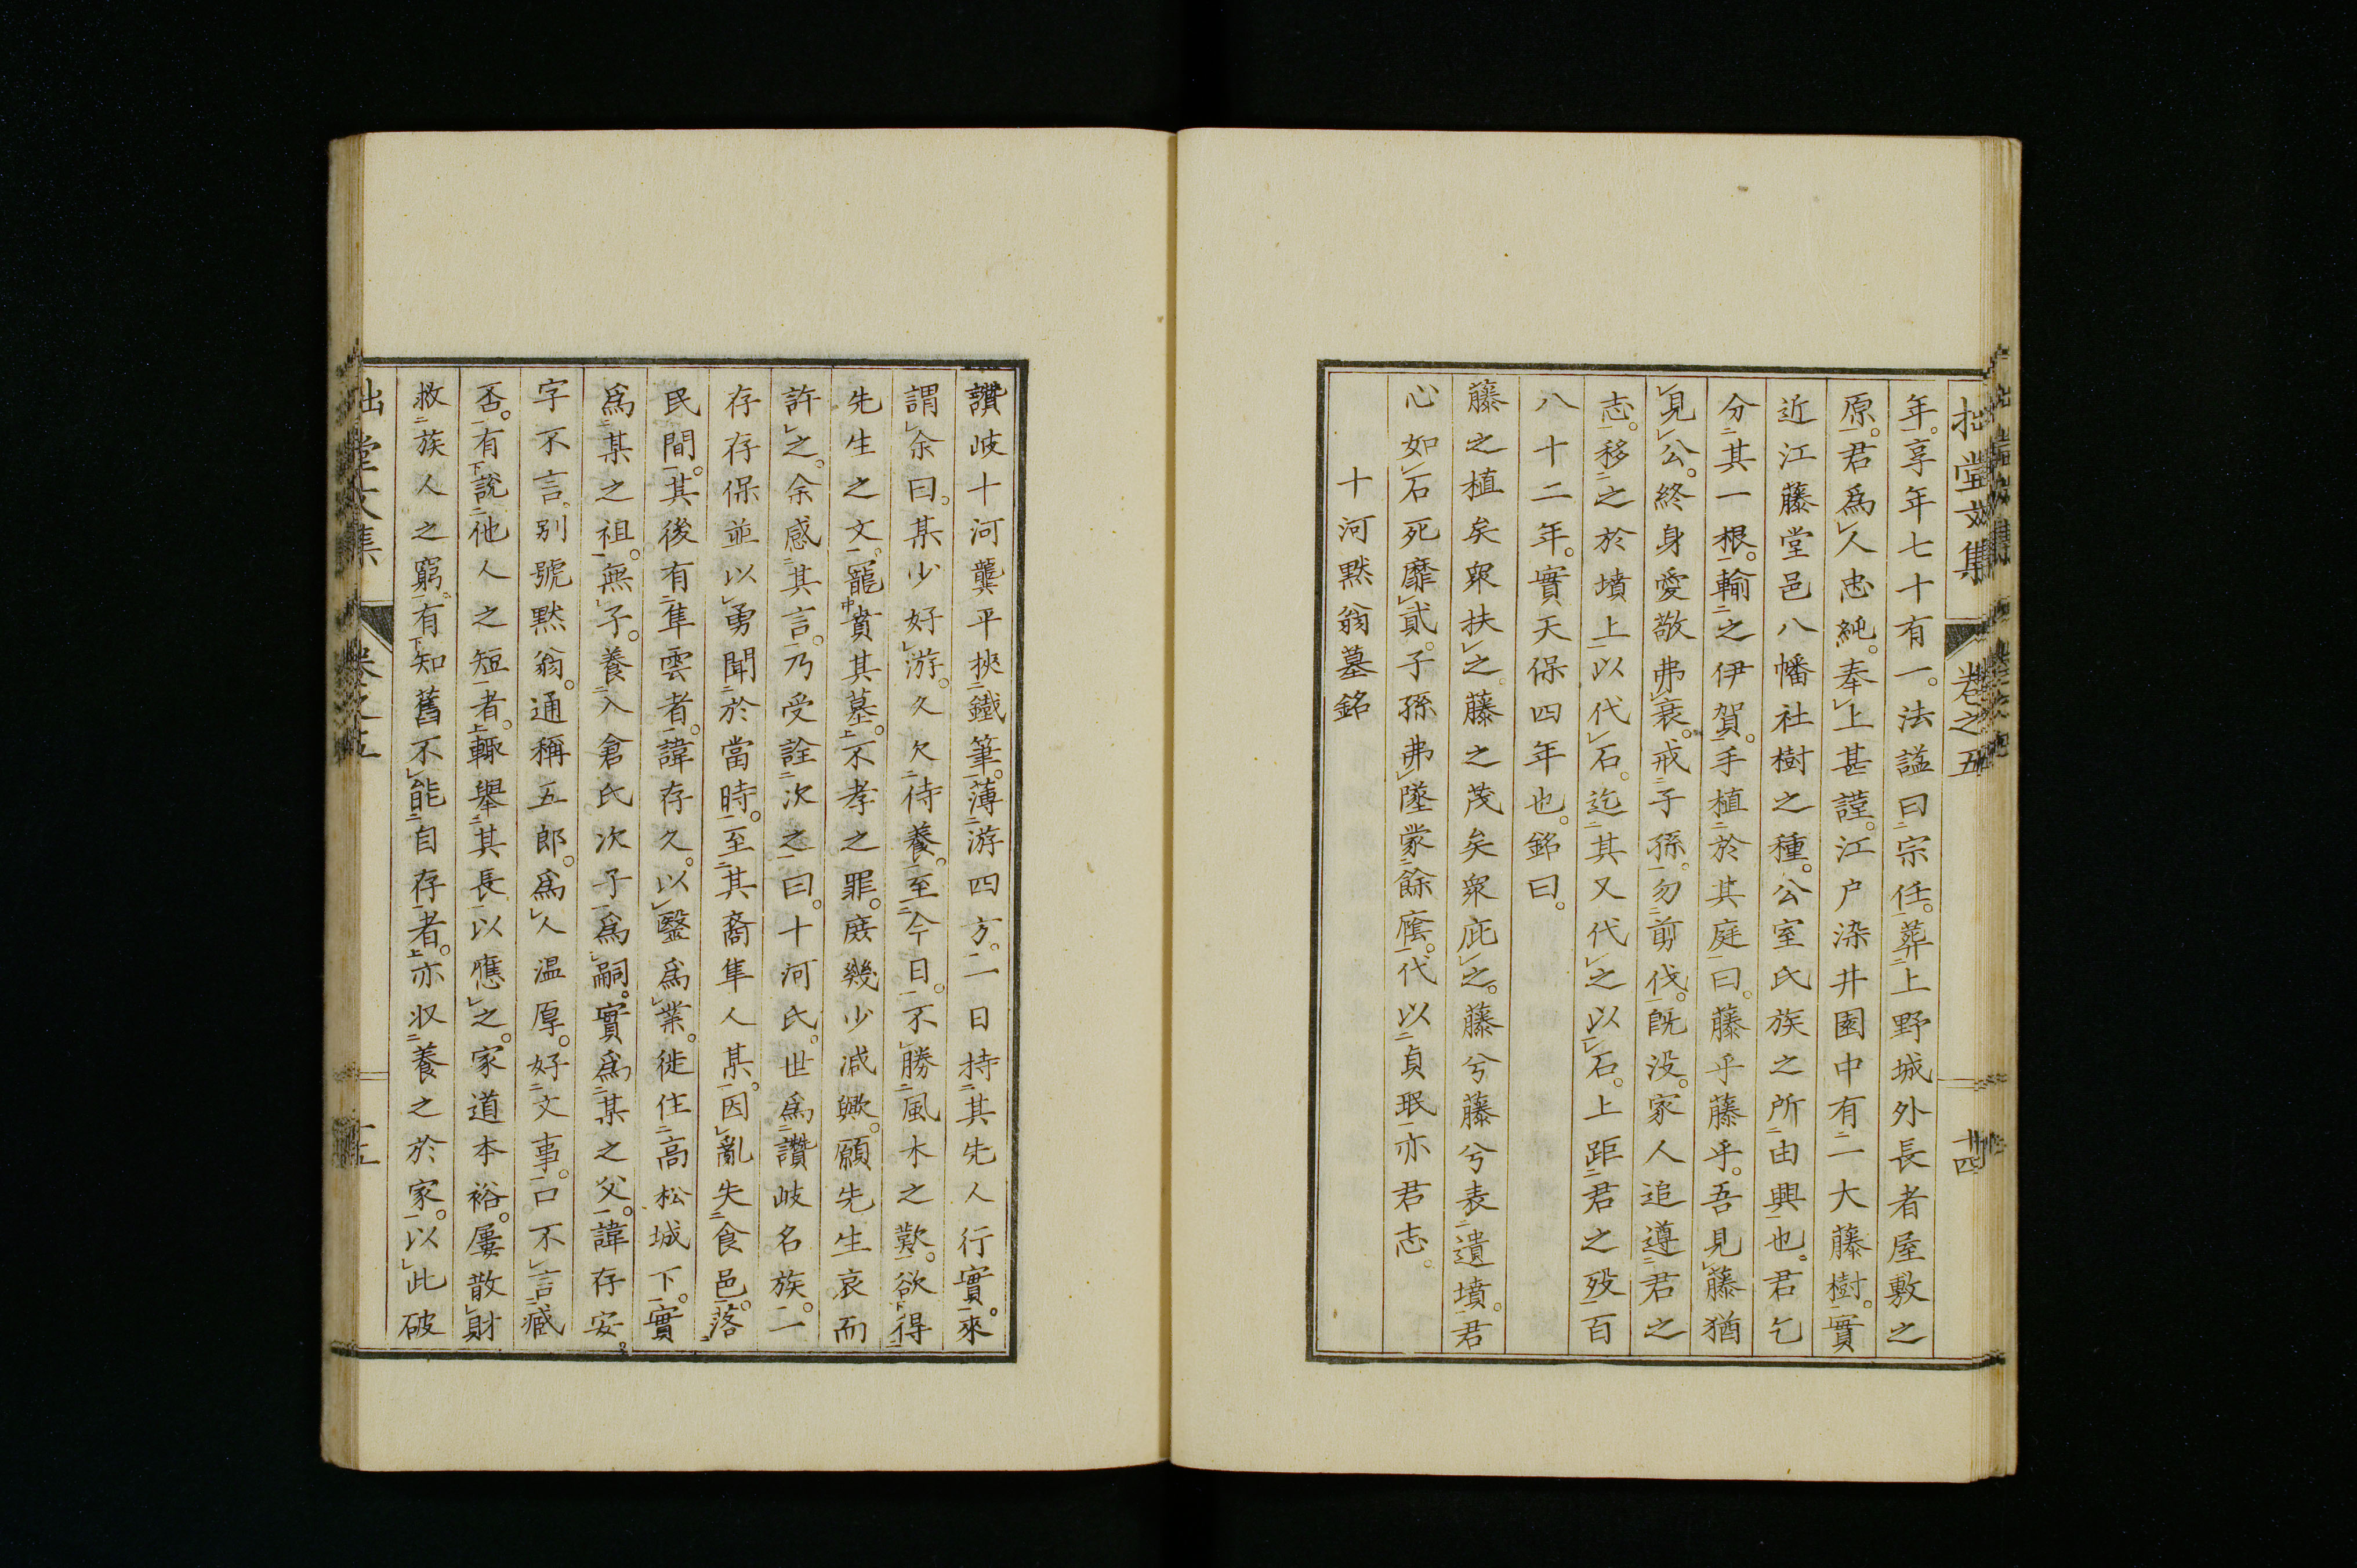 拙堂文集 卷之五 十四
年。享年七十有一。法諡曰宗任。葬上野城外長者屋敷之
原。君爲人忠純。奉上甚謹。江户染井園中有二大藤樹。實
近江藤堂邑八幡社樹之種。公室氏族之所由興也。君乞
分其一根。輸之伊賀。手植於其庭曰。藤乎藤乎。吾見藤猶
見公。終身愛敬弗衰。戒子孫。勿剪伐。既没。家人追遵君之
志。移之於墳上以代石。迄其又代之以石。上距君之歿百
八十二年。實天保四年也。銘曰。
藤之植矣衆扶之。藤之茂矣衆庇之。藤兮藤兮表遺墳。君
心如石死靡貳。子孫弗墜蒙餘廕。代以貞珉亦君志。
十河默翁墓銘
讚岐十河龔平挾鐵筆。薄游四方。一日持其先人行實。來
謂余曰。某少好游。久欠侍養。至今日。不勝風木之歎。欲得
先生之文。寵賁其墓。不孝之罪。庶幾少減歟。願先生哀而
許之。余感其言。乃受詮次之曰。十河氏。世爲讚岐名族。一
存存保並以勇聞於當時。至其裔隼人某。因亂失食邑。落
民間。其後有隼雲者。諱存久。以醫爲業。徙住高松城下。實
爲某之祖。無子。養入倉氏次子爲嗣。實爲某之父。諱存安。
字不言。別號默翁。通稱五郎。爲人温厚。好文事。口不言臧
否。有說他人之短者。輙舉其長以應之。家道本裕。屢散財
救族人之窮。有知舊不能自存者。亦収養之於家。以此破
拙堂文集 卷之五 十五